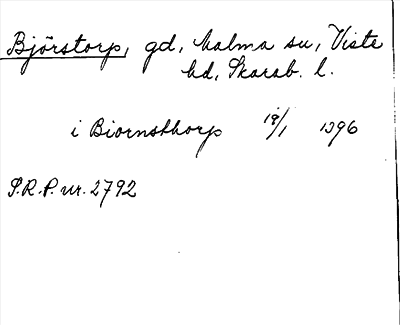 Björstorp, gd, Malma sn, Viste
hd, Skarab. l.
i Biornsthorp 18/1 1396
S.R.P. nr. 2792